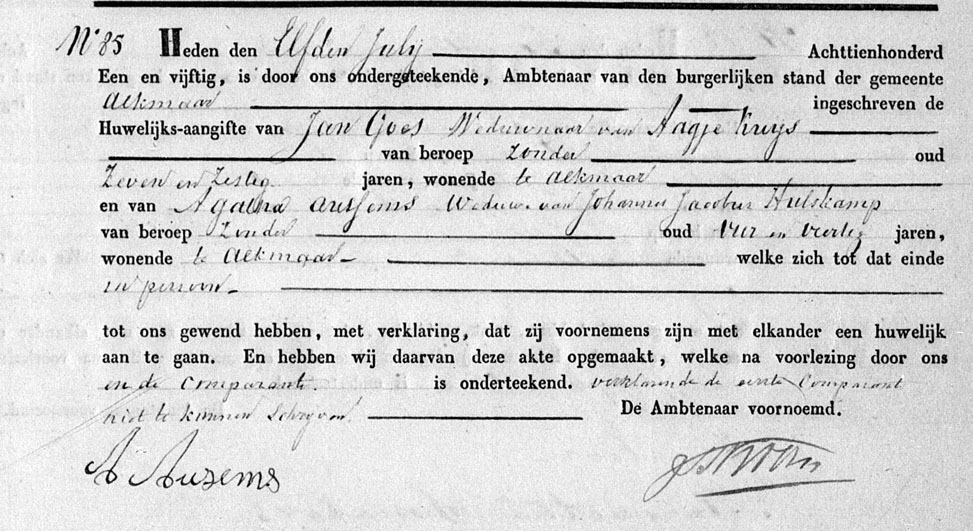 N° 85 Heden den Elfden July Achttienhonderd
Een en vijftig, is door ons ondergeteekende, Ambtenaar van den burgerlijken stand der gemeente
Alkmaar ingeschreven de
Huwelijks-aangifte van Jan Goes Weduwnaar van Aagje Kuijs
van beroep zonder oud
Zeven en Zestig jaren, wonende te Alkmaar
en van Agatha Weduwe van Johannes Jacobus Hulskamp
van beroep Zonder oud Vier en Veertig jaren,
wonende te Alkmaar welke zich tot dat einde
in persoon
tot ons gewend hebben, met verklaring, dat zij voornemens zijn met elkander een huwelijk
aan te gaan. En hebben wij daarvan deze akte opgemaakt, welke na voorlezing door ons
en de comparante is onderteekend. verklarende de eerste Comparant
niet te kunnen Schryven De Ambtenaar voornoemd.
A Auzems